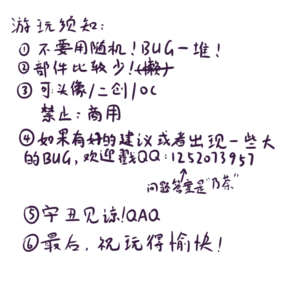 游玩须知:
①不要用随机!BUG一堆!
②部件比较少!(懒)
③可头像/二创/OC
禁止:商用
④如果有好的建议或者出现一些大
的BUG,欢迎戳QQ:1252073957
问题答案是"乃茶"
⑤字丑见谅!QAQ
⑥最后,祝玩得愉快!